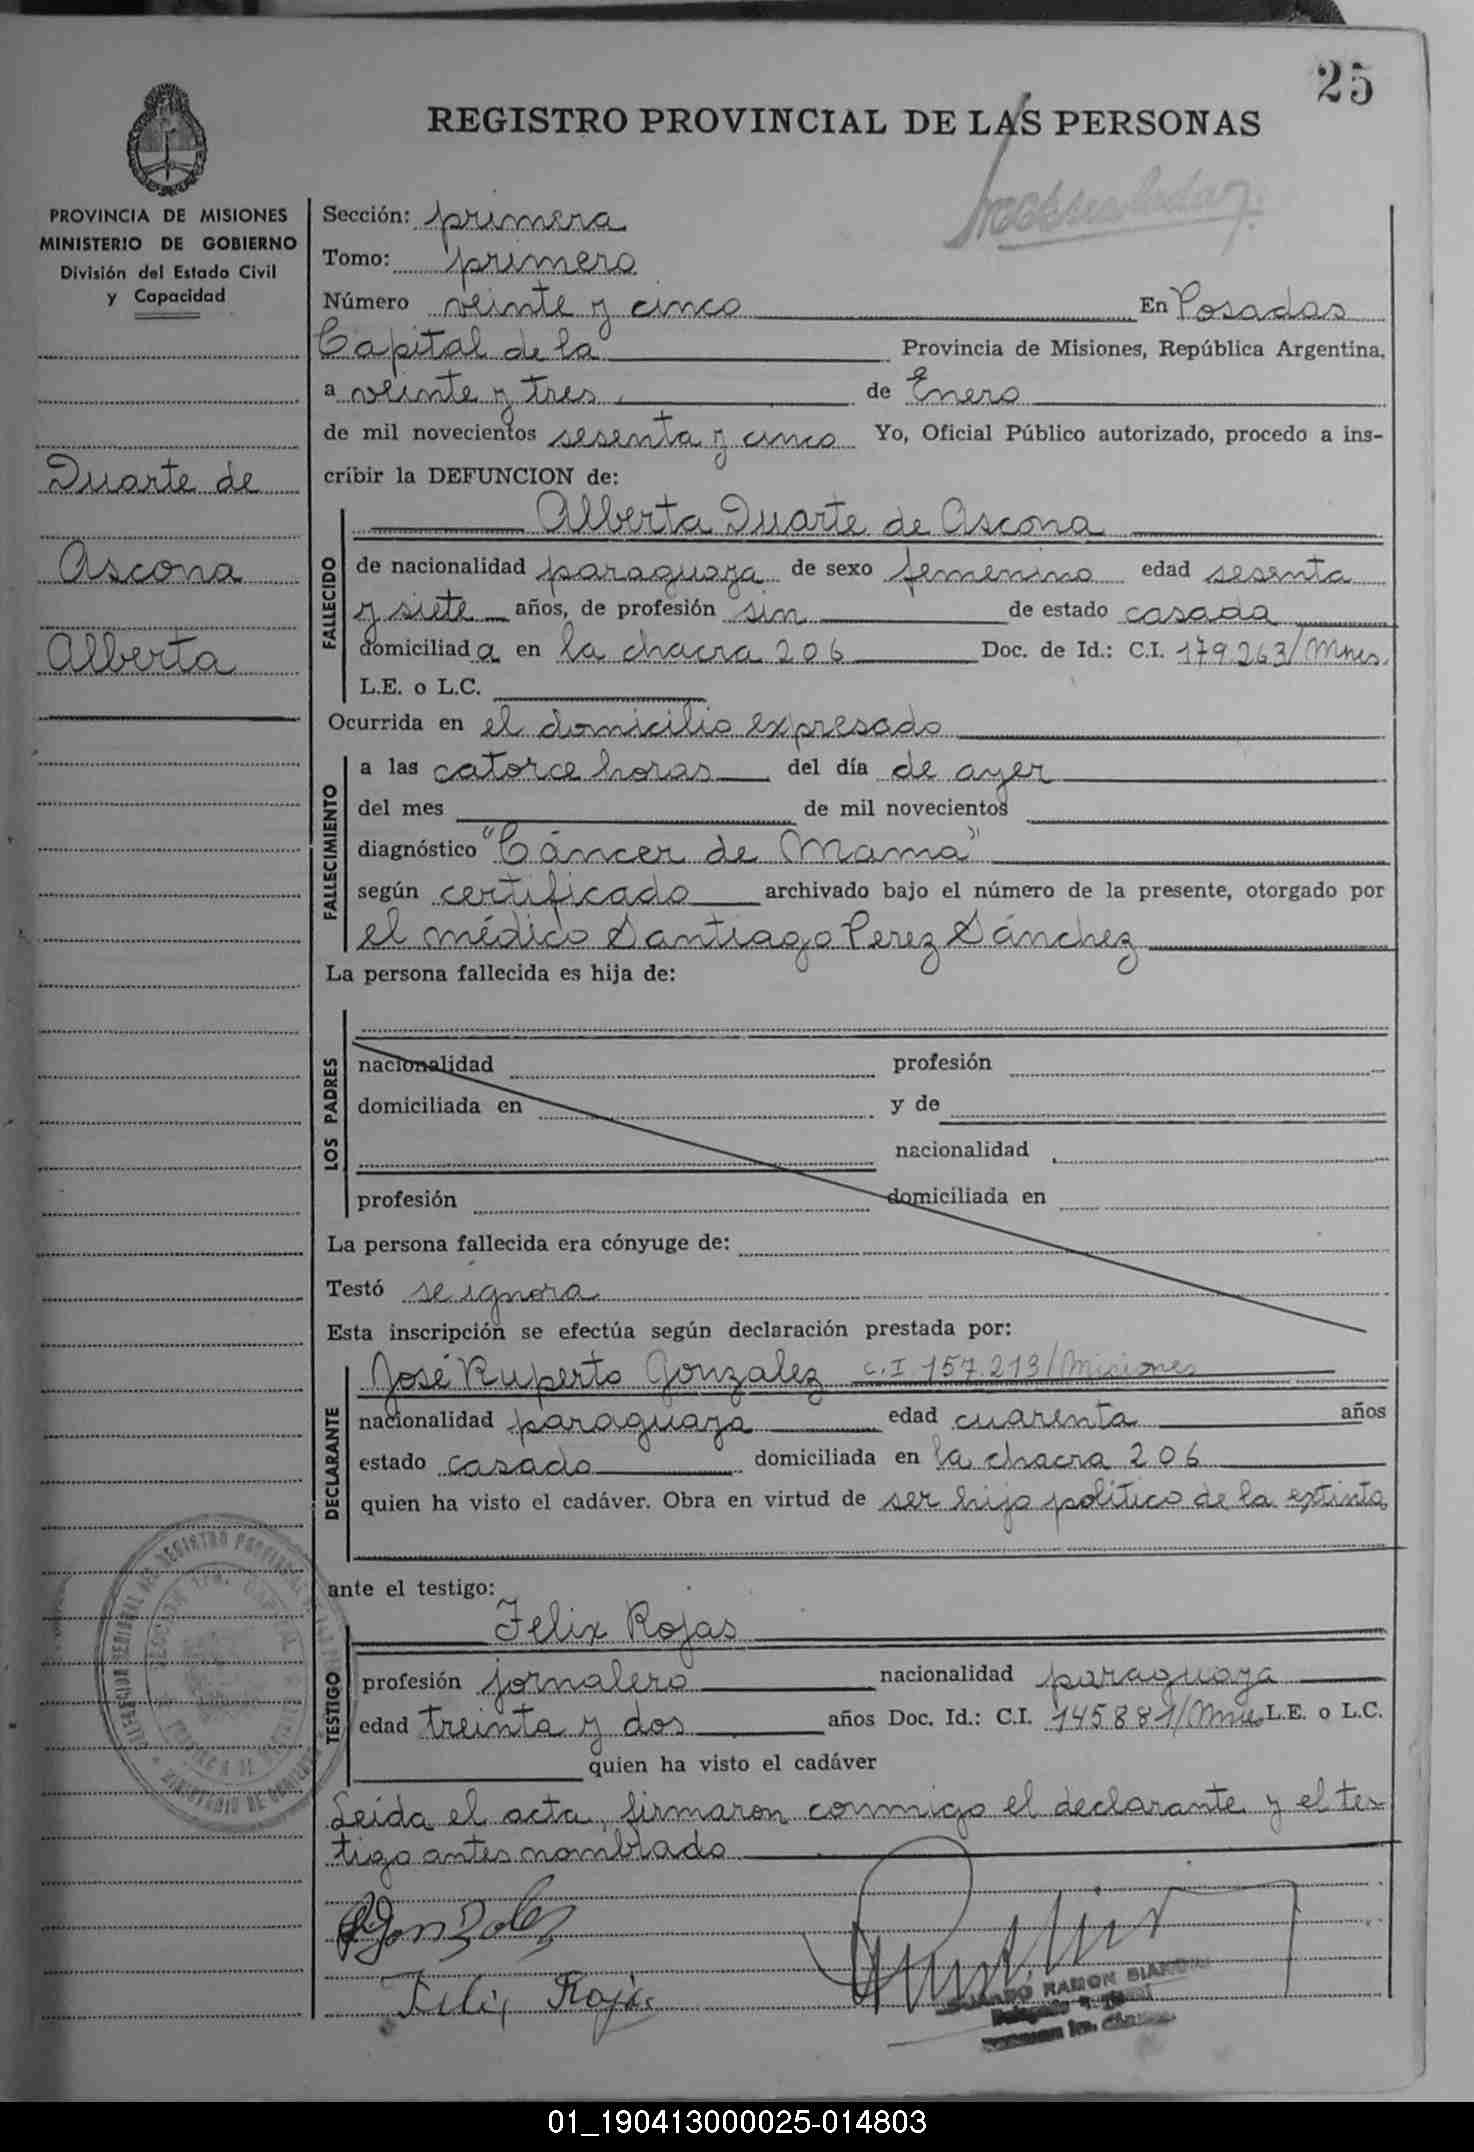 25
REGISTRO PROVINCIAL DE LAS PERSONAS
PROVINCIA DE MISIONES
MINISTERIO DE GOBIERNO
División del Estado Civil
y Capacidad
Duarte de
Ascona
Alberta
Sección: primera
Tomo: primero
Número veinte y cinco En Posadas
Capital de la Provincia de Misiones, República Argentina,
a veinte y tres de Enero
de mil novecientos sesenta y cinco Yo, Oficial Público autorizado, procedo a ins-
cribir la DEFUNCION de:
FALLECIDO
Alberta Duarte de Ascona
de nacionalidad paraguaya de sexo femenino edad sesenta
y siete años, de profesión sin de estado casada
domiciliada en la chacra 206 Doc. de Id.: C.I. 179.263/Mnes.
L.E. o L.C.
Ocurrida en el domicilio expresado
FALLECIMIENTO
a las catorce horas del día de ayer
del mes de mil novecientos
diagnóstico "Cáncer de Mama"
según certificado archivado bajo el número de la presente, otorgado por
el médico Santiago Perez Sánchez
La persona fallecida es hija de:
LOS PADRES
nacionalidad profesión
domiciliada en y de
nacionalidad
profesión domiciliada en
La persona fallecida era cónyuge de:
Testó se ignora
Esta inscripción se efectúa según declaración prestada por:
DECLARANTE
José Ruperto Gonzalez C.I 157.213/Misiones
nacionalidad paraguaya edad cuarenta años
estado casado domiciliada en la chacra 206
quien ha visto el cadáver. Obra en virtud de ser hijo político de la extinta
ante el testigo:
TESTIGO
Felix Rojas
profesión jornalero nacionalidad paraguaya
edad treinta y dos años Doc. Id.: C.I. 145881/Mnes L.E. o L.C.
quien ha visto el cadáver
Leída el acta, firmaron conmigo el declarante y el tes-
tigo antes nombrado
Gonzalez
Felix Rojas
RAMON
01_190413000025-014803